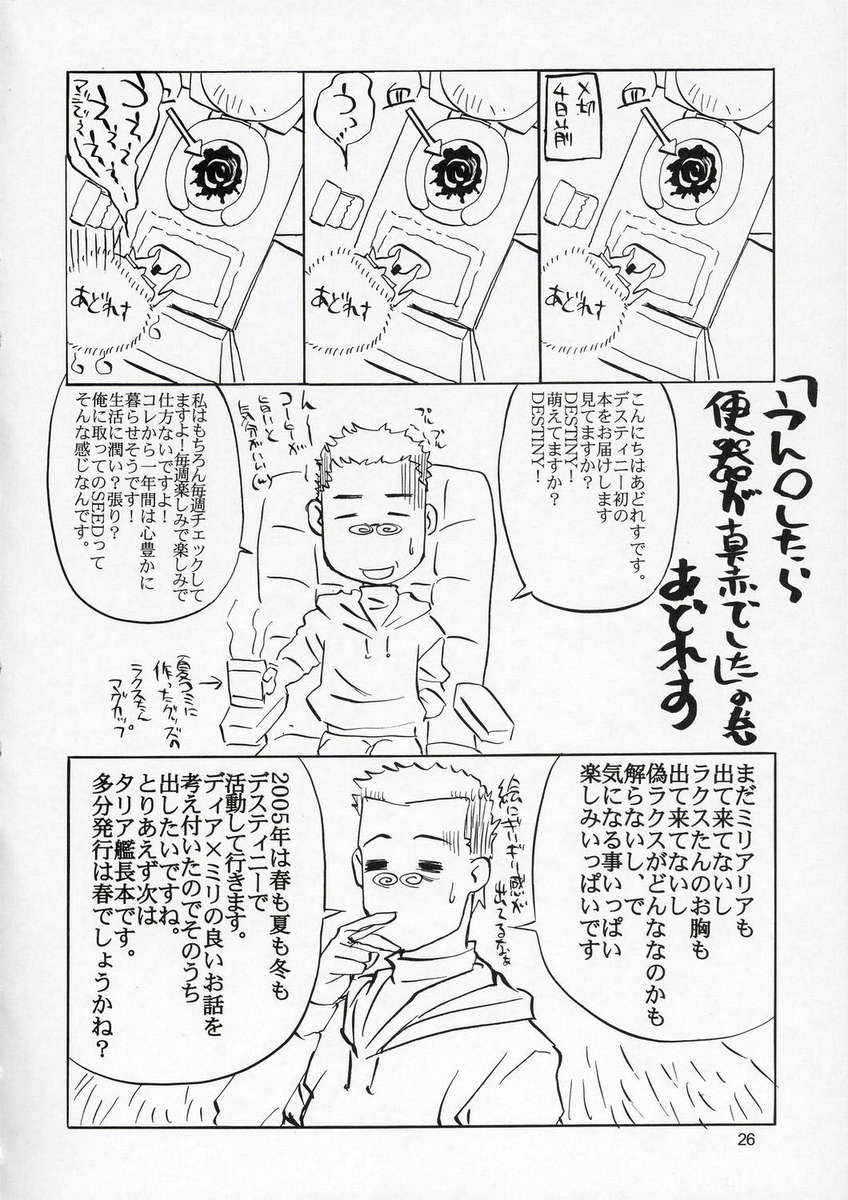 〆切
4日前
血
あどれす
う…っ
血
あどれす
血
マジで…
あどれす
「うん○したら
便器が真赤でした」の巻
あどれす
こんにちはあどれすです。
デスティニー初の
本をお届けします
見てますか?
DESTINY!
萌えてますか?
DESTINY!
プルプル
プルプル
コーヒーが
旨いと
気分がいい
私はもちろん毎週チェックして
ますよ!毎週楽しみで楽しみで
仕方ないですよ!
コレから一年間は心豊かに
暮らせそうです!
生活に潤い?張り?
俺に取ってのSEEDって
そんな感じなんです。
夏コミに
作ったグッズの
ラクスたん
マグカップ
まだミリアリアも
出て来てないし
ラクスたんのお胸も
出て来てないし
偽ラクスがどんななのかも
解らないし、で
気になる事いっぱい
楽しみいっぱいです
絵にギリギリ感が
出てるなぁ
2005年は春も夏も冬も
デスティニーで
活動して行きます。
ディア×ミリの良いお話を
考え付いたのでそのうち
出したいですね。
とりあえず次は
タリア艦長本です。
多分発行は春でしょうかね?
26